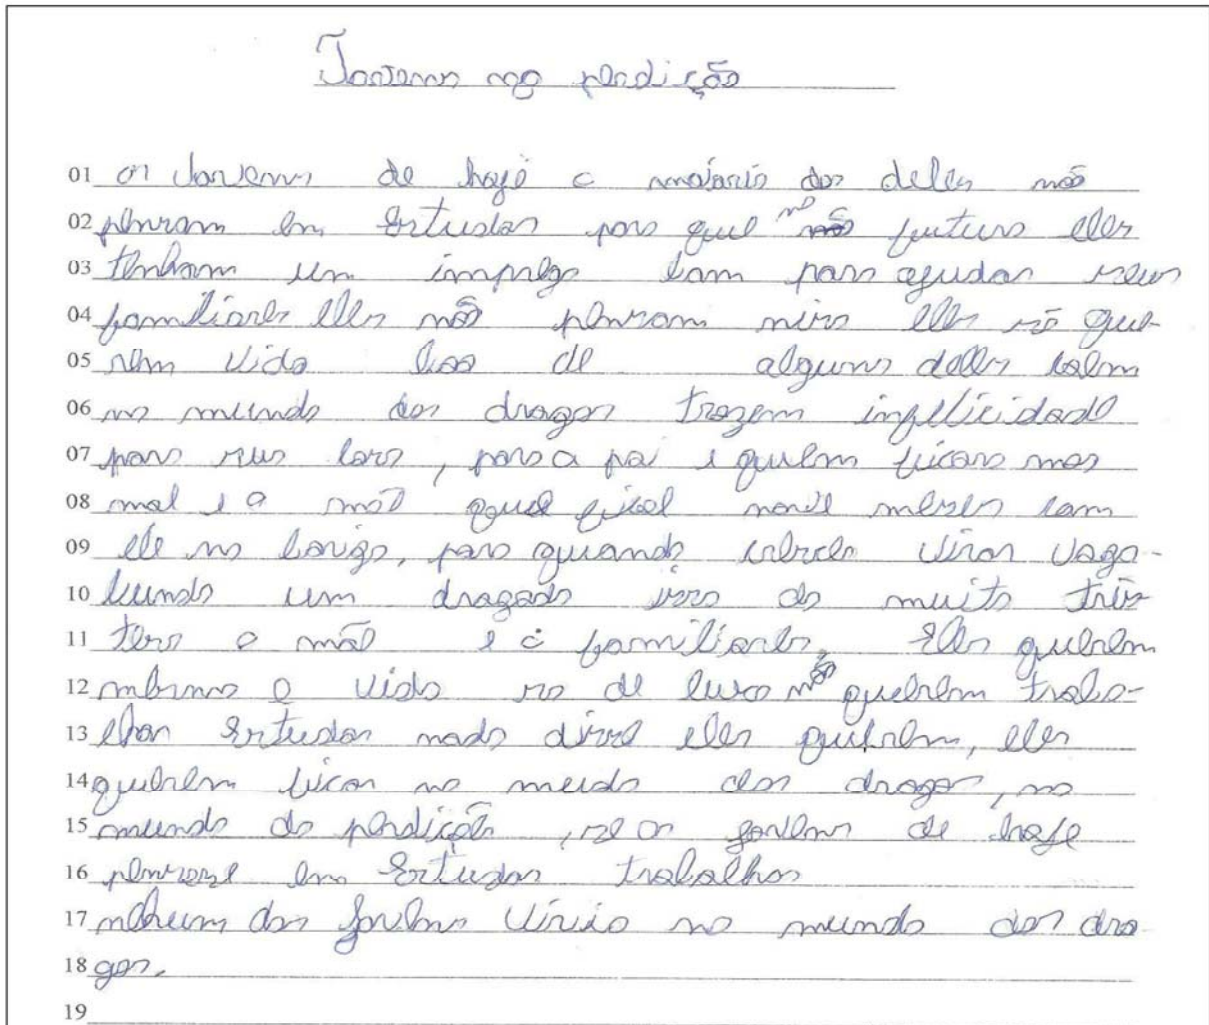 Jovems na perdição
01 os Jovems de hoje a maioria dos deles não
02 pensam em Estudar para que no não futuro eles
03 tenham um imprego bom para ajudar seus
04 familiares eles não pensam niso eles só que-
05 rem vida boa de alguns deles caem
06 no mundo das drogas trazem infelicidade
07 para seus lars, para pai i quem ficara mas
08 mal i a mãe que fical novi meses com
09 ele na bariga, para quando crecer virar vaga-
10 bundo um drogado isso do muito tris-
11 teza a mãe e a familiares, Eles querem
12 mesmo a vida so de luxo não querem traba-
13 lhar Estudar nada disso eles querem, eles
14 querem ficar no meido das drogas, no
15 mundo da perdição, se os jovens de hoje
16 pensase em Estudar trabalhar
17 nehum dos jovens viria no mundo das dro
18 gas.
19